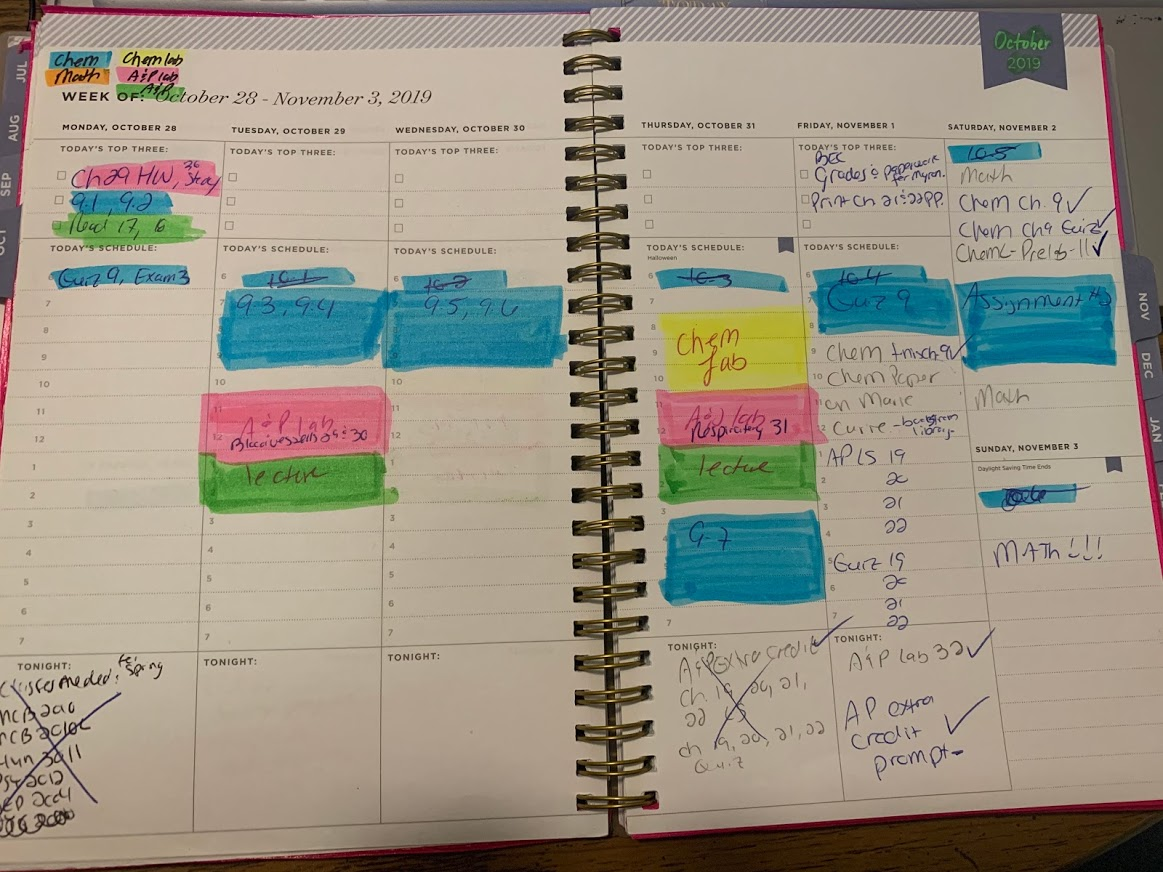 Chem
Chem lab
Math
A&P lab
A&P
WEEK OF: October 28 - November 3, 2019
October
2019
JUL
AUG
SEP
OCT
NOV
DEC
JAN
MONDAY, OCTOBER 28
TODAY'S TOP THREE:
Ch 29 HW,
9.1, 9.2
TODAY'S SCHEDULE:
Quiz 9, Exam 3
7
8
9
10
11
12
1
2
3
4
5
6
7
TONIGHT:
Classes needed for Spring
TUESDAY, OCTOBER 29
TODAY'S TOP THREE:
TODAY'S SCHEDULE:
6
10-1
9.3, 9.4
10
11
A&P lab
12
Blood vessels 29 & 30
lecture
3
4
5
6
7
TONIGHT:
WEDNESDAY, OCTOBER 30
TODAY'S TOP THREE:
TODAY'S SCHEDULE:
6
10-2
9.5, 9.6
10
11
12
1
2
3
4
5
6
7
TONIGHT:
THURSDAY, OCTOBER 31
TODAY'S TOP THREE:
TODAY'S SCHEDULE:
Halloween
6
10-3
7
8
Chem
9
lab
10
A&P lab
Respiratory 31
lecture
3
9-7
7
TONIGHT:
A&P extra credit
ch 19, 20, 21,
22 LS
ch 19, 20, 21, 22
Quiz
FRIDAY, NOVEMBER 1
TODAY'S TOP THREE:
Grades & paperwork
for Myron.
Print ch 21 & 22 PP.
TODAY'S SCHEDULE:
6
10-4
Quiz 9
8
9
Chem finish 9
10
Chem Paper
11
on Marie
12
Curie -
1
AP LS 19
20
21
22
Quiz 19
20
21
22
TONIGHT:
A&P lab 32
AP extra
credit
prompt-
SATURDAY, NOVEMBER 2
10-5
Math
Chem ch. 9
Chem ch 9 Quiz
Chem L- Prelab-11
Assignment #
Math
SUNDAY, NOVEMBER 3
Daylight Saving Time Ends
MATH!!!